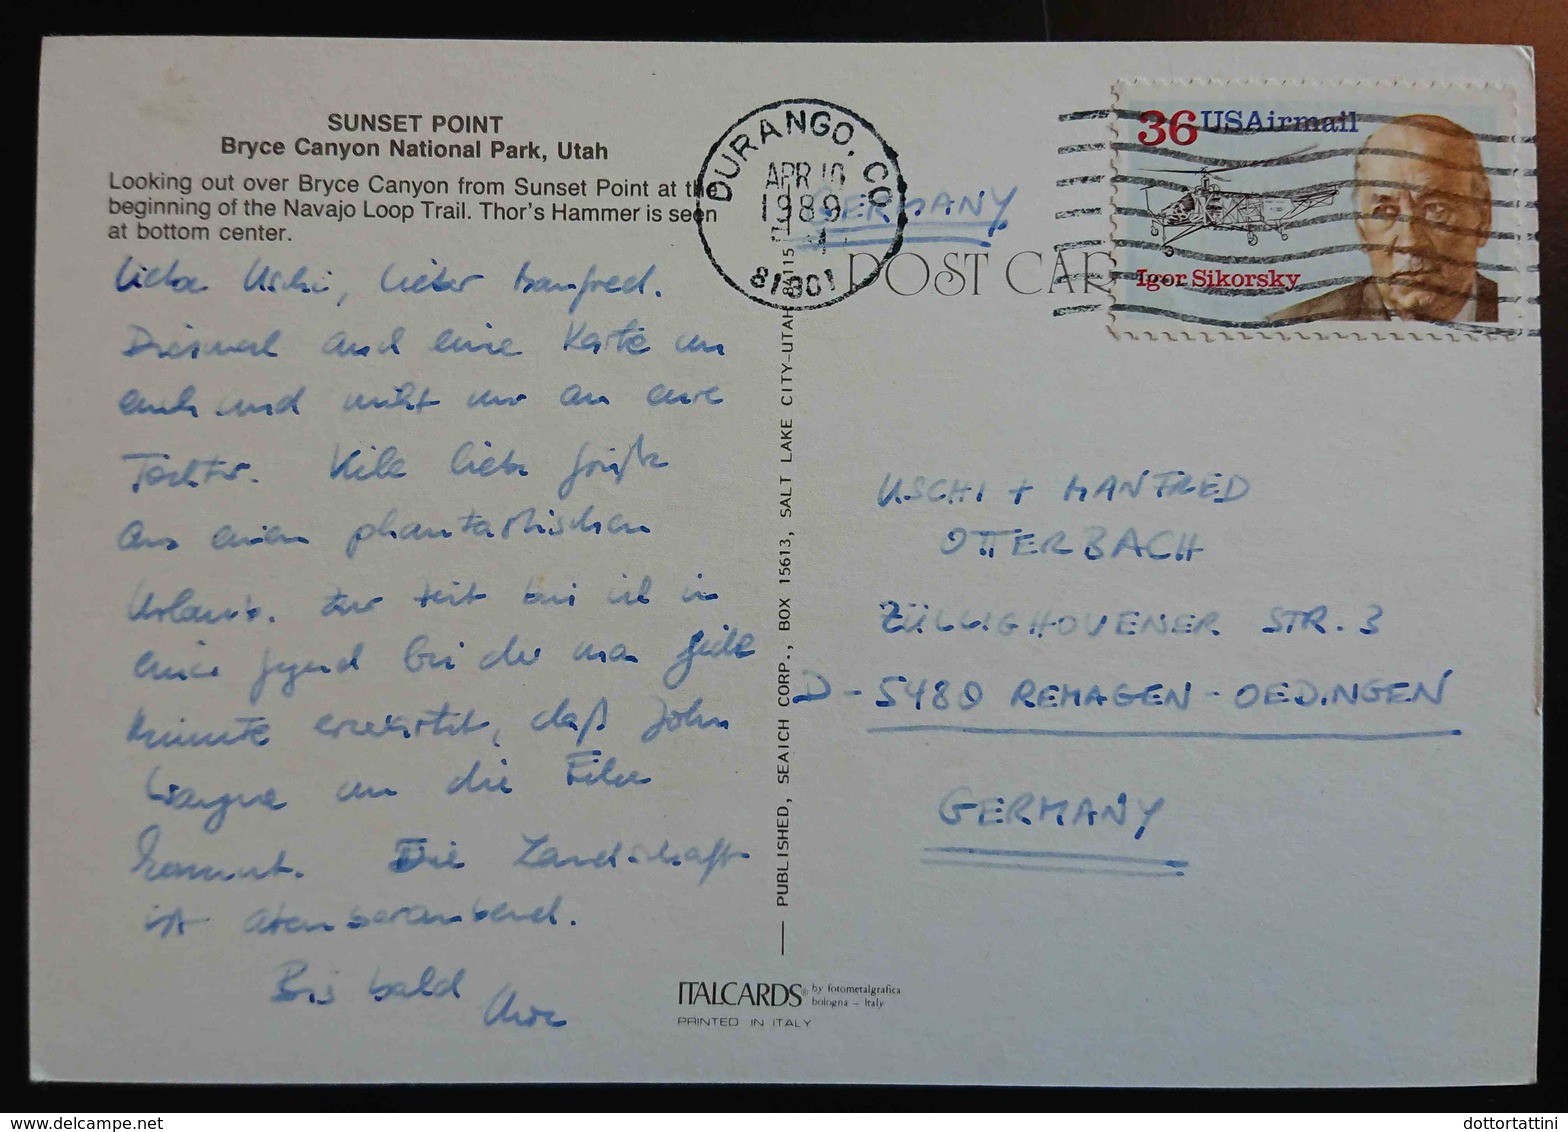 SUNSET POINT
Bryce Canyon National Park, Utah
Looking out over Bryce Canyon from Sunset Point at the
beginning of the Navajo Loop Trail. Thor's Hammer is seen
at bottom center.
Liebe Uschi, lieber Manfred.
Diesmal auch eine Karte an
euch und nicht nur an eure
Tochter. Viele liebe Grüße
aus einem phantastischen
Urlaub. Zur Zeit bin ich in
einer Gegend bei der man jede
Minute erwartet, daß John
Wayne um die Ecke
kommt. Die Landschaft
ist atemberaubend.
Bis bald
Uwe
DURANGO, CO
APR 10
1989
81301
GERMANY
POST CAR
36 USAirmail
Igor Sikorsky
USCHI + MANFRED
OTTERBACH
ZÜLLIGHOVENER STR. 3
D-5480 REMAGEN-OEDINGEN
GERMANY
— PUBLISHED, SEAICH CORP., BOX 15613, SALT LAKE CITY-UTAH 84115
ITALCARDS® by fotometalgrafica
bologna - Italy
PRINTED IN ITALY
dottortattini